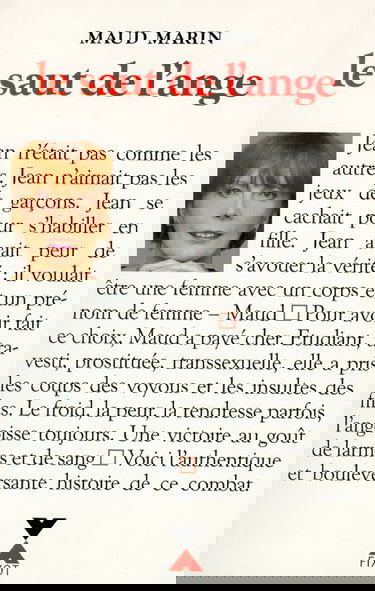 MAUD MARIN
le saut de l'ange
Jean n'était pas comme les
autres, Jean n'aimait pas les
jeux des garçons. Jean se
cachait pour s'habiller en
fille. Jean avait peur de
s'avouer la vérité : il voulait
être une femme avec un corps et un pré-
nom de femme – Maud □ Pour avoir fait
ce choix, Maud a payé cher. Etudiant, tra-
vesti, prostituée, transsexuelle, elle a pris
les coups des voyous et les insultes des
flics. Le froid, la peur, la tendresse parfois,
l'angoisse toujours. Une victoire au goût
de larmes et de sang □ Voici l'authentique
et bouleversante histoire de ce combat.
FIXOT